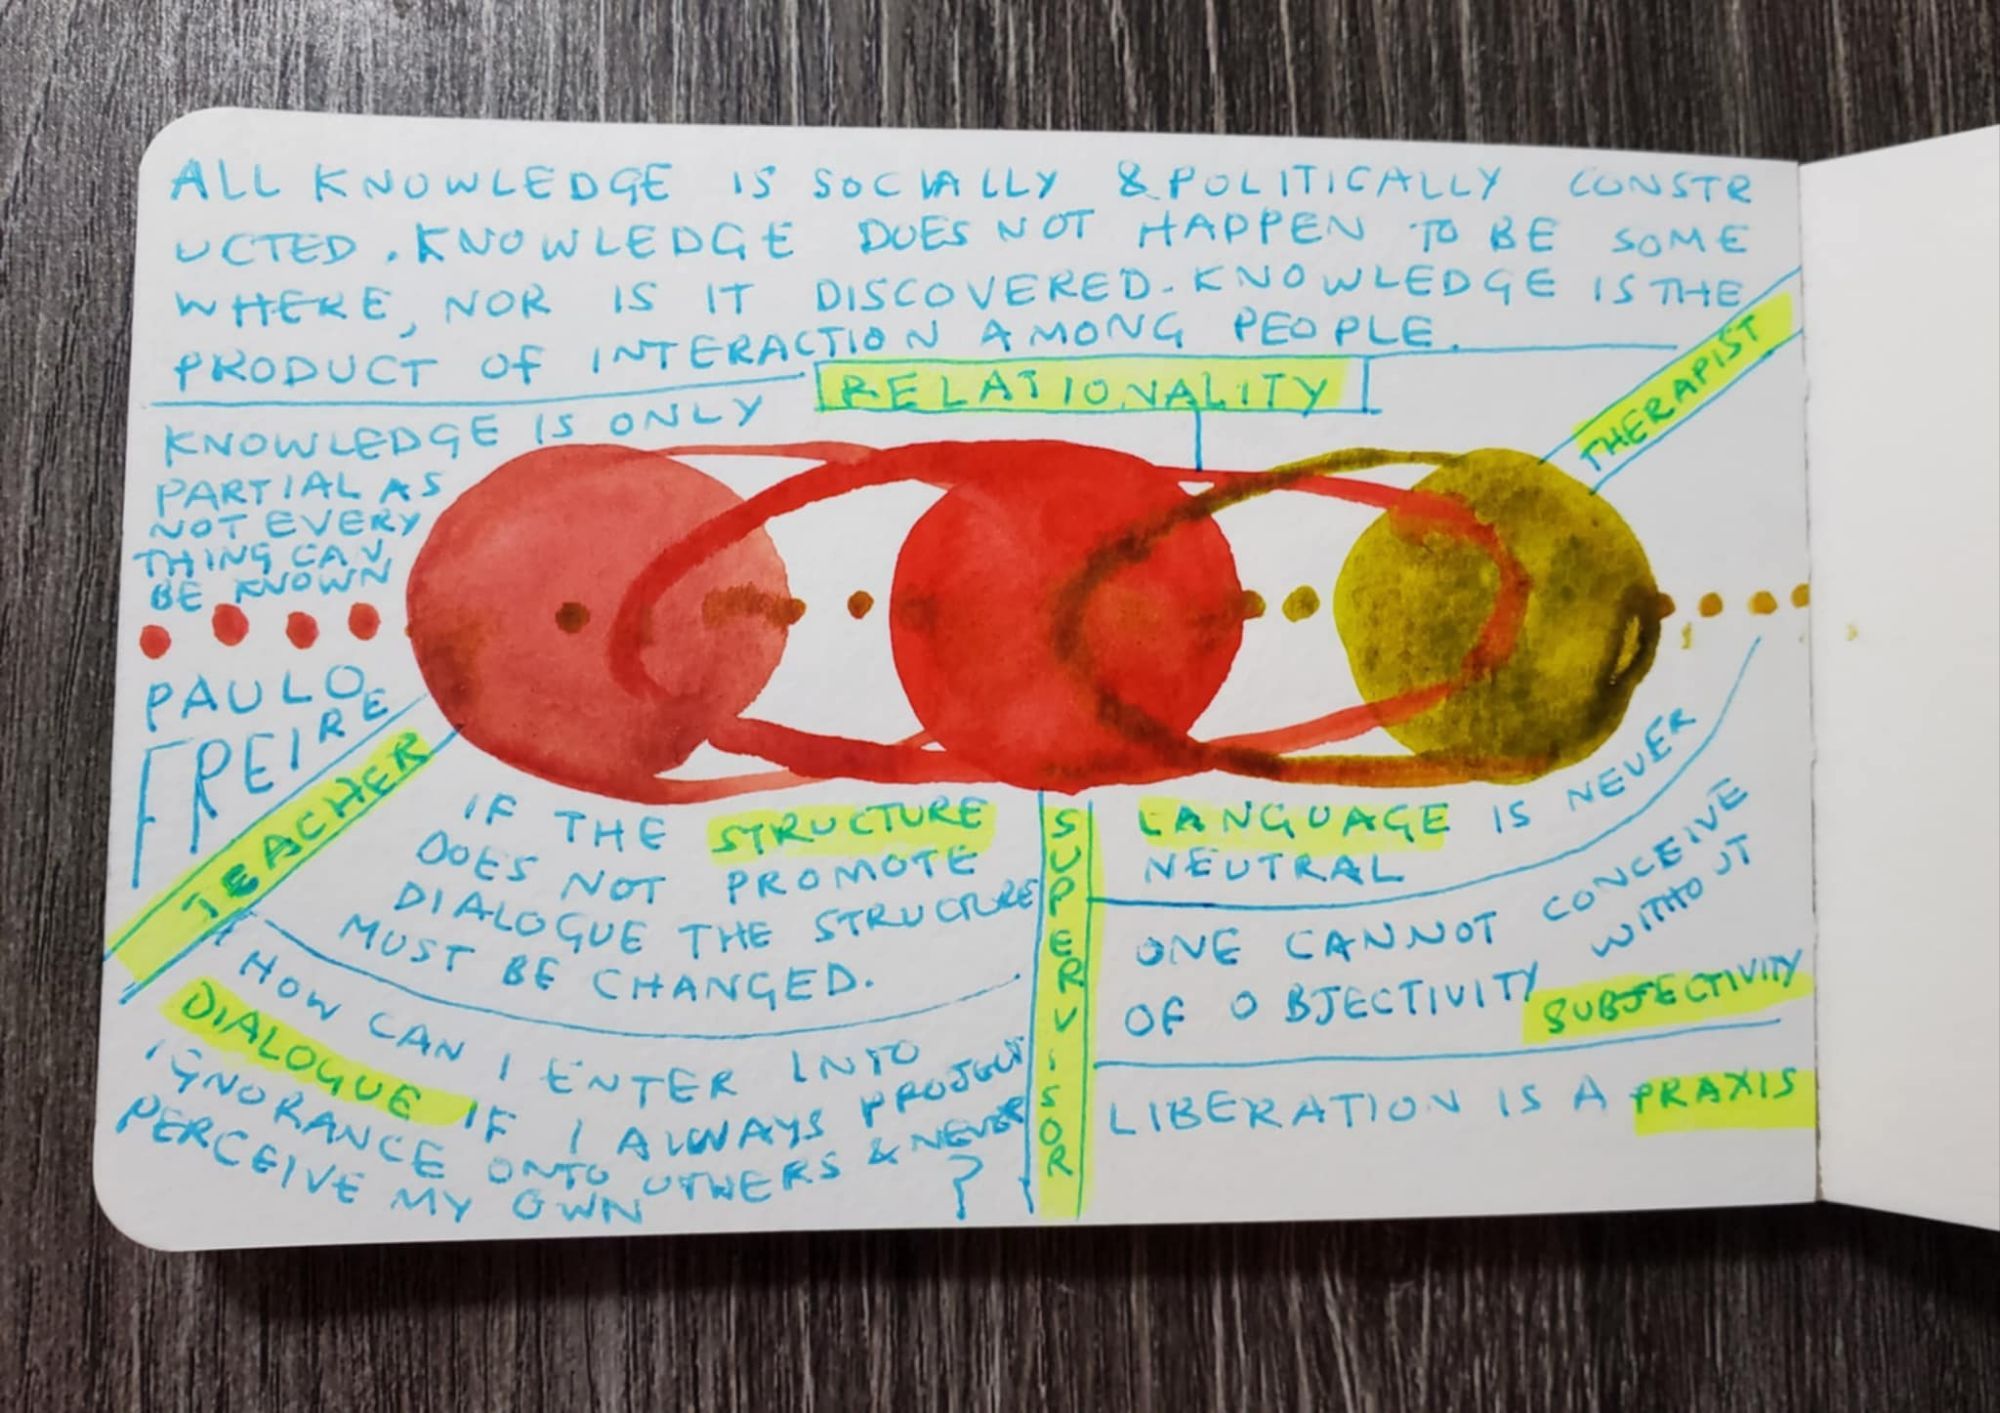 ALL KNOWLEDGE IS SOCIALLY & POLITICALLY CONSTR
UCTED. KNOWLEDGE DOES NOT HAPPEN TO BE SOME
WHERE, NOR IS IT DISCOVERED. KNOWLEDGE IS THE
PRODUCT OF INTERACTION AMONG PEOPLE.
RELATIONALITY
THERAPIST
KNOWLEDGE IS ONLY
PARTIAL AS
NOT EVERY
THING CAN
BE KNOWN
PAULO
FREIRE
TEACHER
IF THE STRUCTURE
DOES NOT PROMOTE
DIALOGUE THE STRUCTURE
MUST BE CHANGED.
HOW CAN I ENTER INTO
DIALOGUE IF I ALWAYS PROJECT
IGNORANCE ONTO OTHERS & NEVER
PERCEIVE MY OWN ?
SUPERVISOR
LANGUAGE IS NEVER
NEUTRAL
ONE CANNOT CONCEIVE
OF OBJECTIVITY WITHOUT
SUBJECTIVITY
LIBERATION IS A PRAXIS